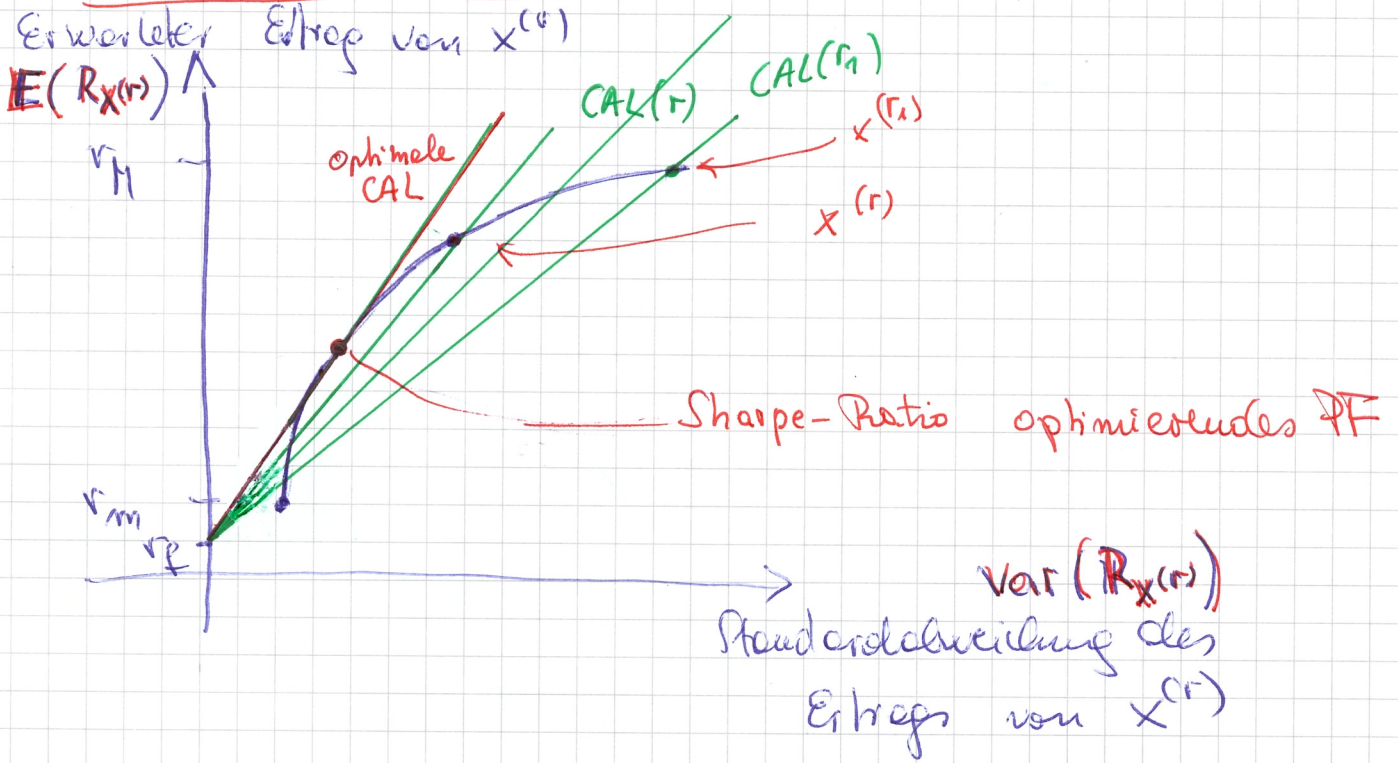 Erwarteter Ertrag von x^(r)
E(R_x(r))
CAL(r)
CAL(r_1)
r_M
optimale
CAL
x^(r_1)
x^(r)
Sharpe-Ratio optimierendes PF
r_m
r_f
var(R_x(r))
Standardabweichung des
Ertrags von x^(r)